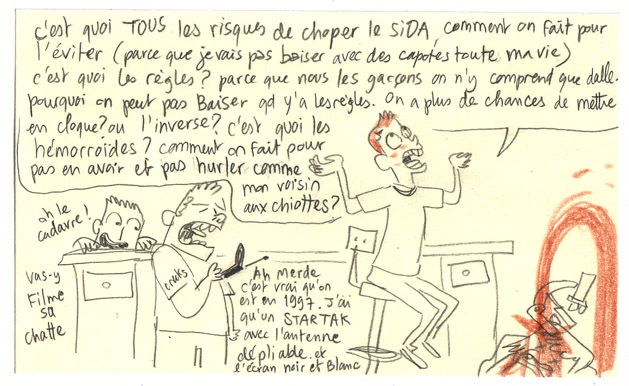 c'est quoi TOUS les risques de choper le SiDA, comment on fait pour
l'éviter (parce que je vais pas baiser avec des capotes toute ma vie)
c'est quoi les règles? parce que nous les garçons on n'y comprend que dalle.
pourquoi on peut pas Baiser qd y'a les règles. On a plus de chances de mettre
en cloque? ou l'inverse? c'est quoi les
hémorroïdes? comment on fait pour
pas en avoir et pas hurler comme
mon voisin
aux chiottes?
ah le
cadavre!
vas-y
Filme
sa
chatte
Ah merde
c'est vrai qu'on
est en 1997. J'ai
qu'un STARTAK
avec l'antenne
dépliable. et
l'écran noir et Blanc